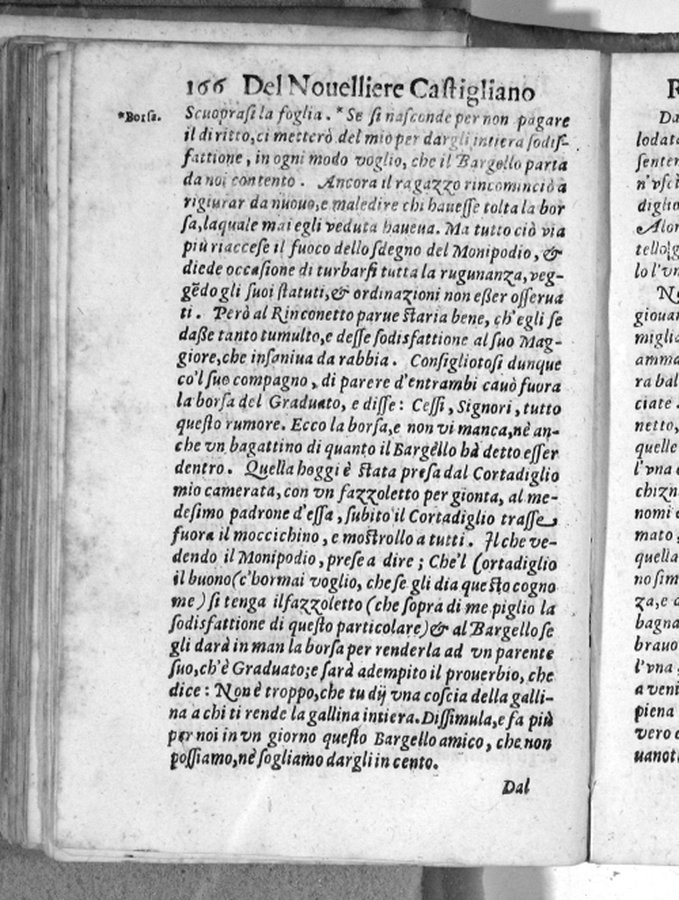 166 Del Nouelliere Castigliano
*Borsa.
Scuoprasi la foglia. * Se si nasconde per non pagare
il diritto, ci metterò del mio per dargli intiera sodis-
fattione, in ogni modo voglio, che il Bargello parta
da noi contento. Ancora il ragazzo rincominciò a
rigiurar da nuouo, e maledire chi hauesse tolta la bor
sa, laquale mai egli veduta haueua. Ma tutto ciò via
più riaccese il fuoco dello sdegno del Monipodio, &
diede occasione di turbarsi tutta la rugunanza, veg-
gẽdo gli suoi statuti, & ordinazioni non esser osserua
ti. Però al Rinconetto parue staria bene, ch'egli se
dasse tanto tumulto, e desse sodisfattione al suo Mag-
giore, che insaniua da rabbia. Consigliotosi dunque
co'l suo compagno, di parere d'entrambi cauò fuora
la borsa del Graduato, e disse: Cessi, Signori, tutto
questo rumore. Ecco la borsa, e non vi manca, nè an-
che vn bagattino di quanto il Bargello hà detto esser
dentro. Quella hoggi è stata presa dal Cortadiglio
mio camerata, con vn fazzoletto per gionta, al me-
desimo padrone d'essa, subito il Cortadiglio trasse
fuora il moccichino, e mostrollo a tutti. Il che ve-
dendo il Monipodio, prese a dire; Che'l Cortadiglio
il buono (c'hormai voglio, che se gli dia questo cogno
me) si tenga il fazzoletto (che sopra di me piglio la
sodisfattione di questo particolare) & al Bargello se
gli darà in man la borsa per renderla ad vn parente
suo, ch'è Graduato; e sarà adempito il prouerbio, che
dice: Non è troppo, che tu dij vna coscia della galli-
na a chi ti rende la gallina intiera. Dissimula, e fa più
per noi in vn giorno questo Bargello amico, che non
possiamo, nè sogliamo dargli in cento.
Dal